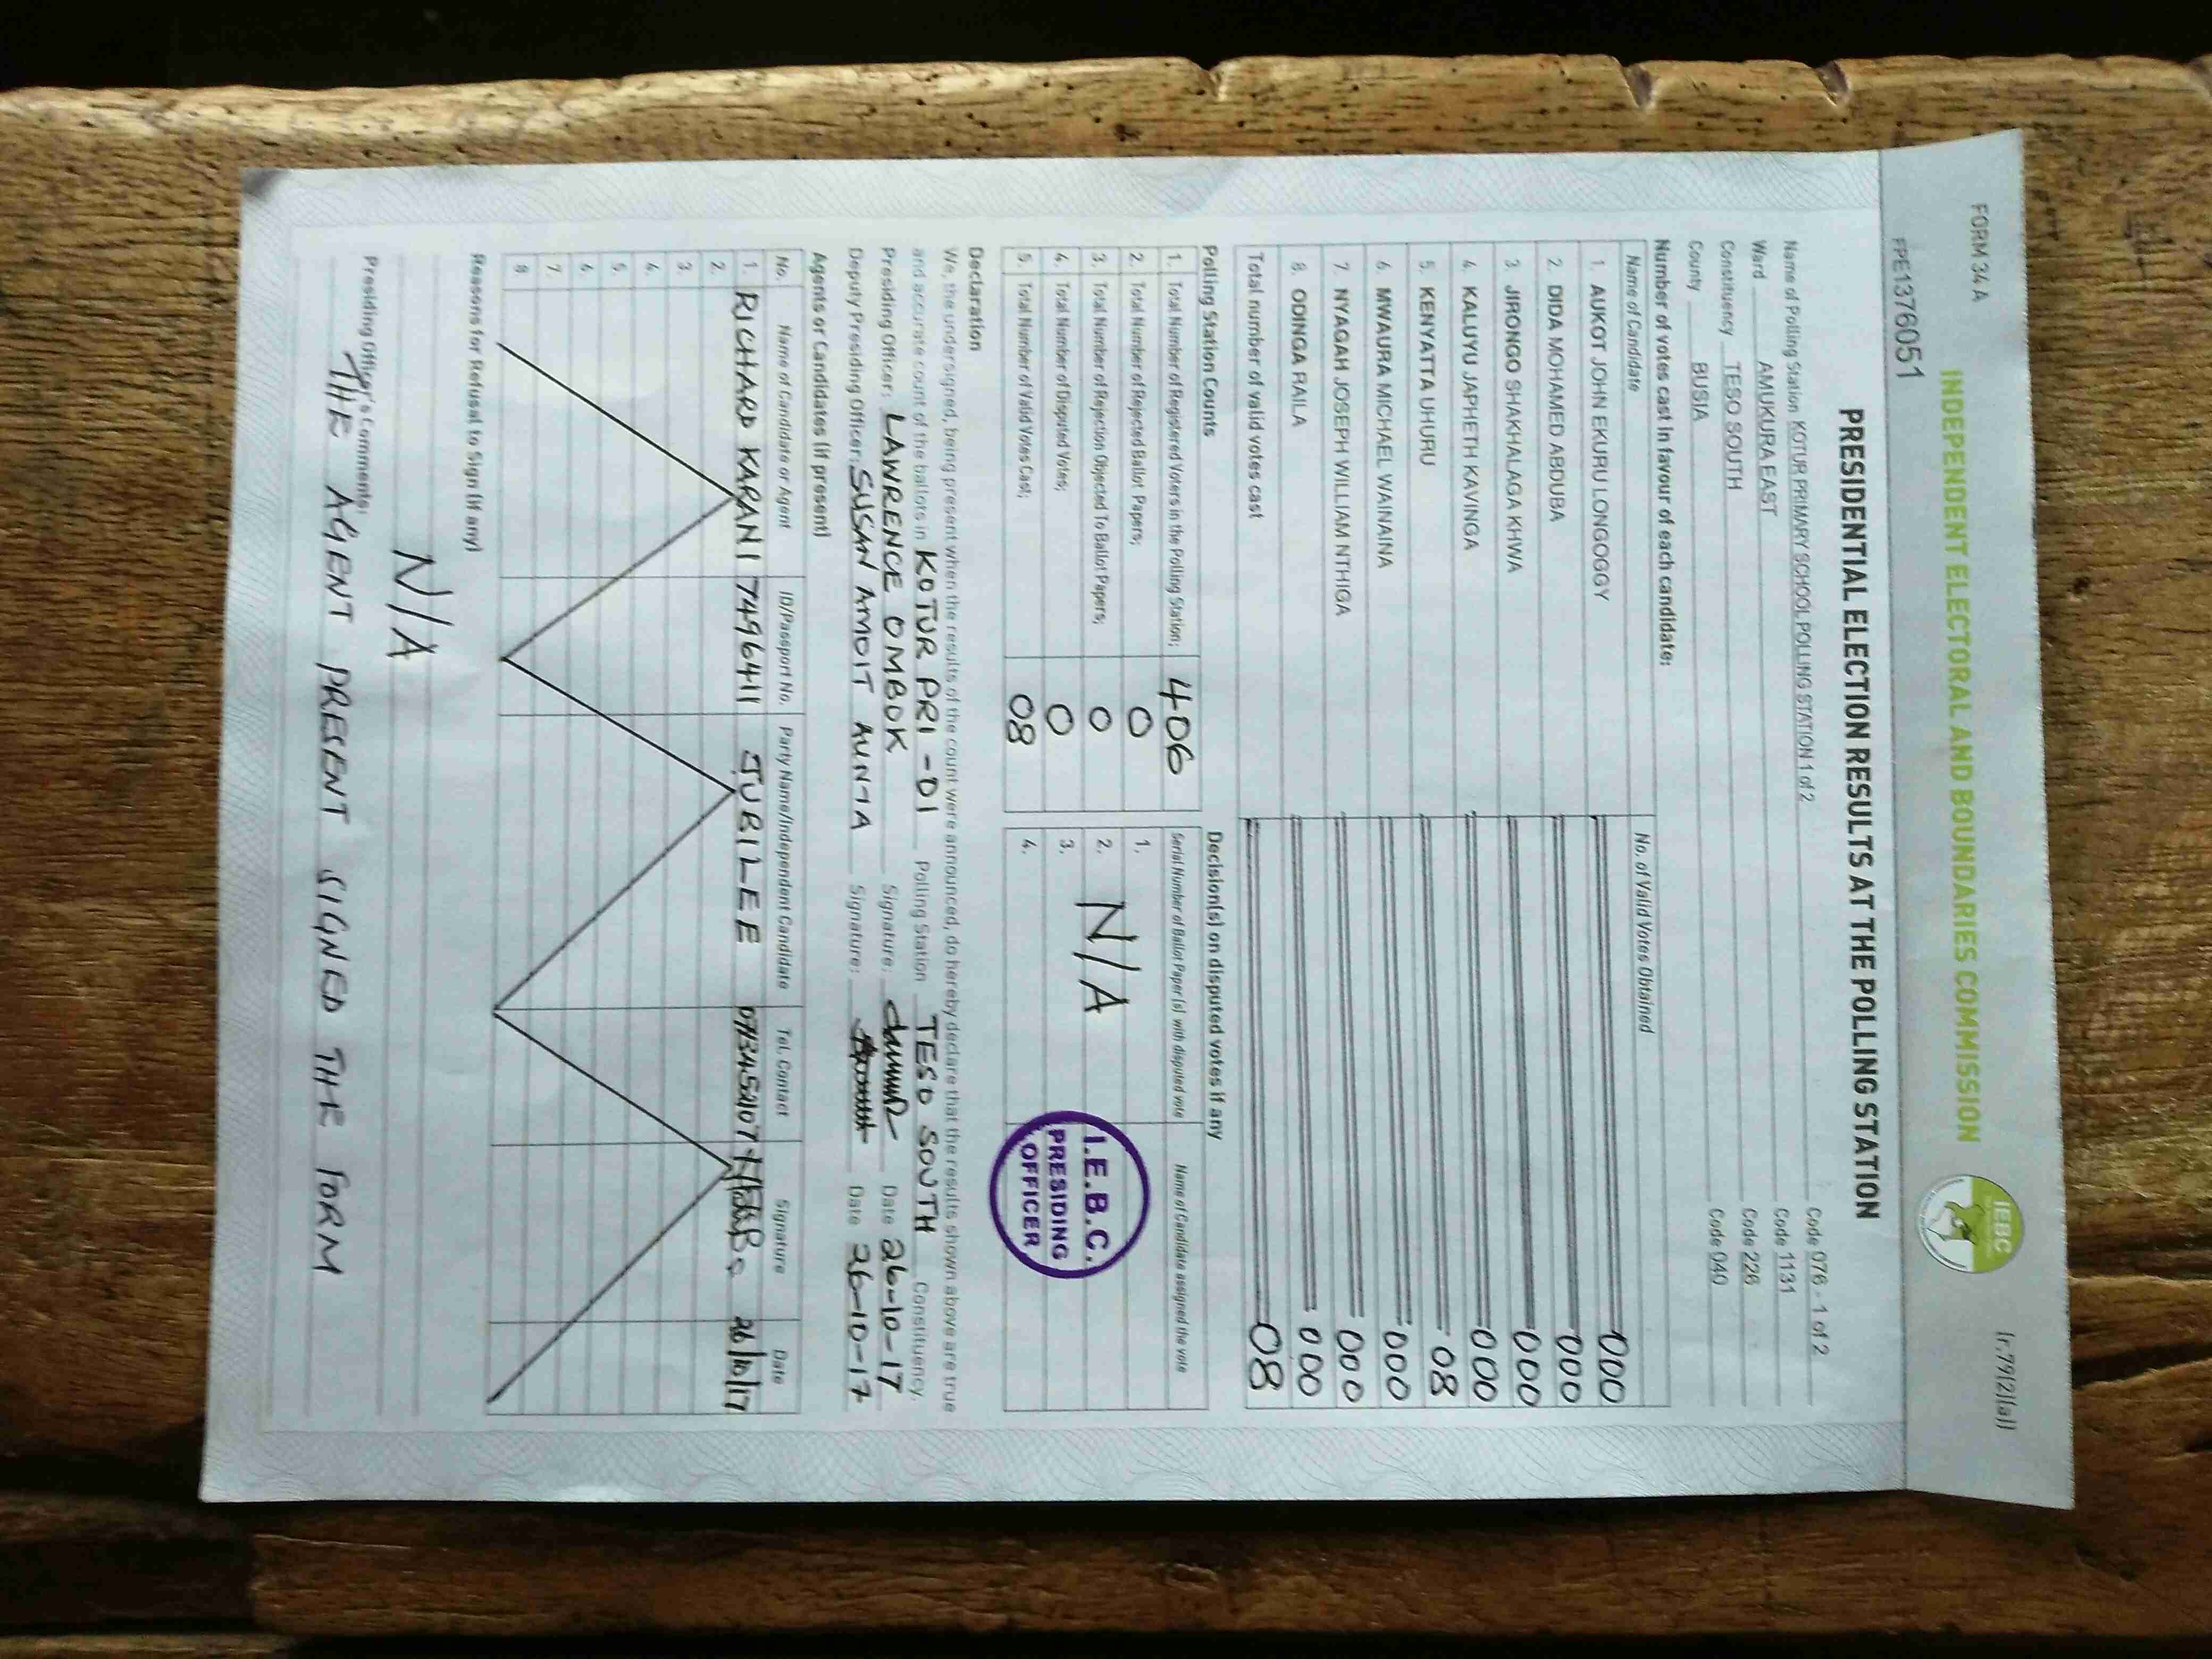 FORM 34 A
(r.79(2)(a))
INDEPENDENT ELECTORAL AND BOUNDARIES COMMISSION
IEBC
FPE1376051
PRESIDENTIAL ELECTION RESULTS AT THE POLLING STATION
Name of Polling Station KOTUR PRIMARY SCHOOL POLLING STATION 1 of 2 Code 076 - 1 of 2
Ward AMUKURA EAST Code 1131
Constituency TESO SOUTH Code 226
County BUSIA Code 040
Number of votes cast in favour of each candidate:
Name of Candidate No. of Valid Votes Obtained
1. AUKOT JOHN EKURU LONGOGGY 000
2. DIDA MOHAMED ABDUBA 000
3. JIRONGO SHAKHALAGA KHWA 000
4. KALUYU JAPHETH KAVINGA 000
5. KENYATTA UHURU 08
6. MWAURA MICHAEL WAINAINA 000
7. NYAGAH JOSEPH WILLIAM NTHIGA 000
8. ODINGA RAILA 000
Total number of valid votes cast 08
Polling Station Counts
1. Total Number of Registered Voters in the Polling Station; 406
2. Total Number of Rejected Ballot Papers; 0
3. Total Number of Rejection Objected To Ballot Papers; 0
4. Total Number of Disputed Votes; 0
5. Total Number of Valid Votes Cast; 08
Decision(s) on disputed votes if any
Serial Number of Ballot Paper(s) with disputed vote Name of Candidate assigned the vote
1.
2. N/A
3.
4.
I.E.B.C.
PRESIDING
OFFICER
Declaration
We, the undersigned, being present when the results of the count were announced, do hereby declare that the results shown above are true
and accurate count of the ballots in KOTUR PRI - 01 Polling Station TESO SOUTH Constituency.
Presiding Officer: LAWRENCE OMBOK Signature: Date 26-10-17
Deputy Presiding Officer: SUSAN AMOIT Signature: Date 26-10-17
Agents or Candidates (if present)
No. Name of Candidate or Agent ID/Passport No. Party Name/Independent Candidate Tel. Contact Signature Date
1. RICHARD KARANI 7496411 JUBILEE 26/10/17
2.
3.
4.
5.
6.
7.
8.
Reasons for Refusal to Sign (if any)
N/A
Presiding Officer's Comments:
THE AGENT PRESENT SIGNED THE FORM